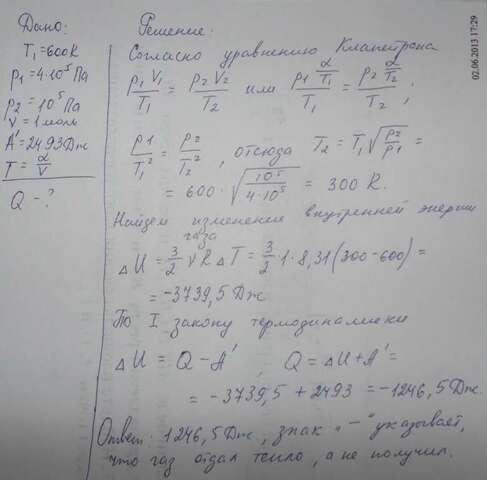 Дано:
T₁ = 600 К
p₁ = 4·10⁵ Па
p₂ = 10⁵ Па
ν = 1 моль
A' = 2493 Дж
T = α/V
Q - ?
Решение:
Согласно уравнению Клапейрона
p₁V₁/T₁ = p₂V₂/T₂ или p₁ (α/T₁)/T₁ = p₂ (α/T₂)/T₂ ;
p₁/T₁² = p₂/T₂² , отсюда T₂ = T₁√(p₂/p₁) =
= 600 · √(10⁵/4·10⁵) = 300 К.
Найдем изменение внутренней энергии
газа
ΔU = 3/2 νRΔT = 3/2 · 1 · 8,31(300-600) =
= -3739,5 Дж
По I закону термодинамики
ΔU = Q - A' , Q = ΔU + A' =
= -3739,5 + 2493 = -1246,5 Дж.
Ответ: 1246,5 Дж, знак "-" указывает,
что газ отдал тепло, а не получил.
02.06.2013 17:29